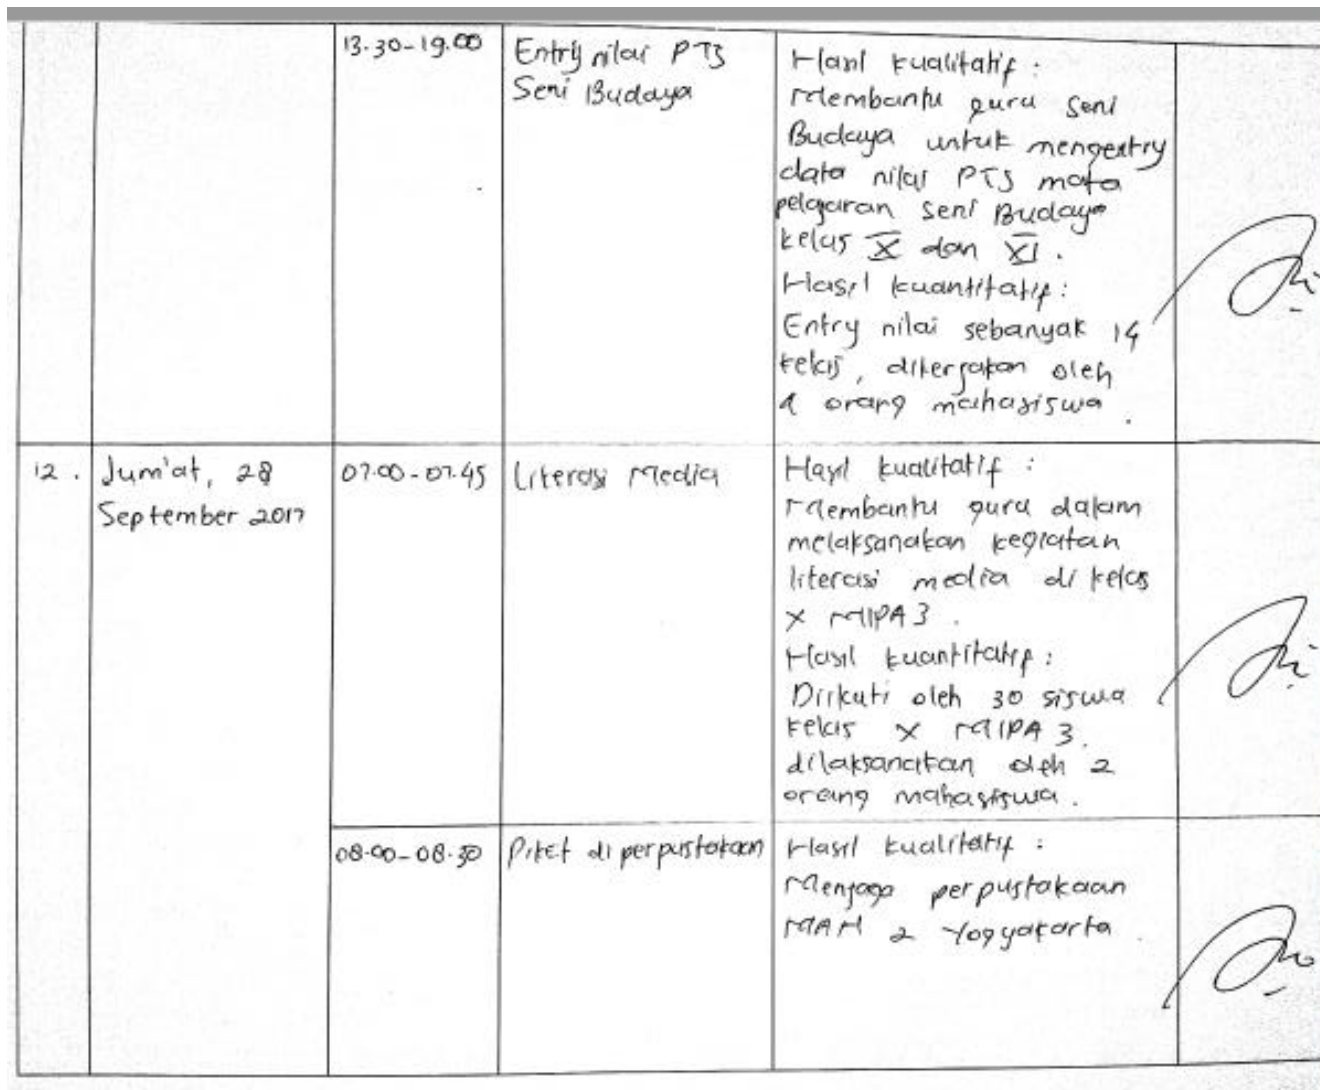 13.30-19.00
Entry nilai PTS
Seni Budaya
Hasil kualitatif :
Membantu guru seni
Budaya untuk mengentry
data nilai PTS mata
pelajaran seni Budaya
kelas X dan XI.
Hasil kuantitatif :
Entry nilai sebanyak 14
kelas, dikerjakan oleh
orang mahasiswa.
12. Jum'at, 28
September 2017
07.00-07.45
Literasi Media
Hasil kualitatif :
Membantu guru dalam
melaksanakan kegiatan
literasi media di kelas
X MIPA 3.
Hasil kuantitatif :
Diikuti oleh 30 siswa
kelas X MIPA 3.
dilaksanakan oleh 2
orang mahasiswa.
08.00-08.30
Piket di perpustakaan
Hasil kualitatif :
Menjaga perpustakaan
MAN 2 Yogyakarta.